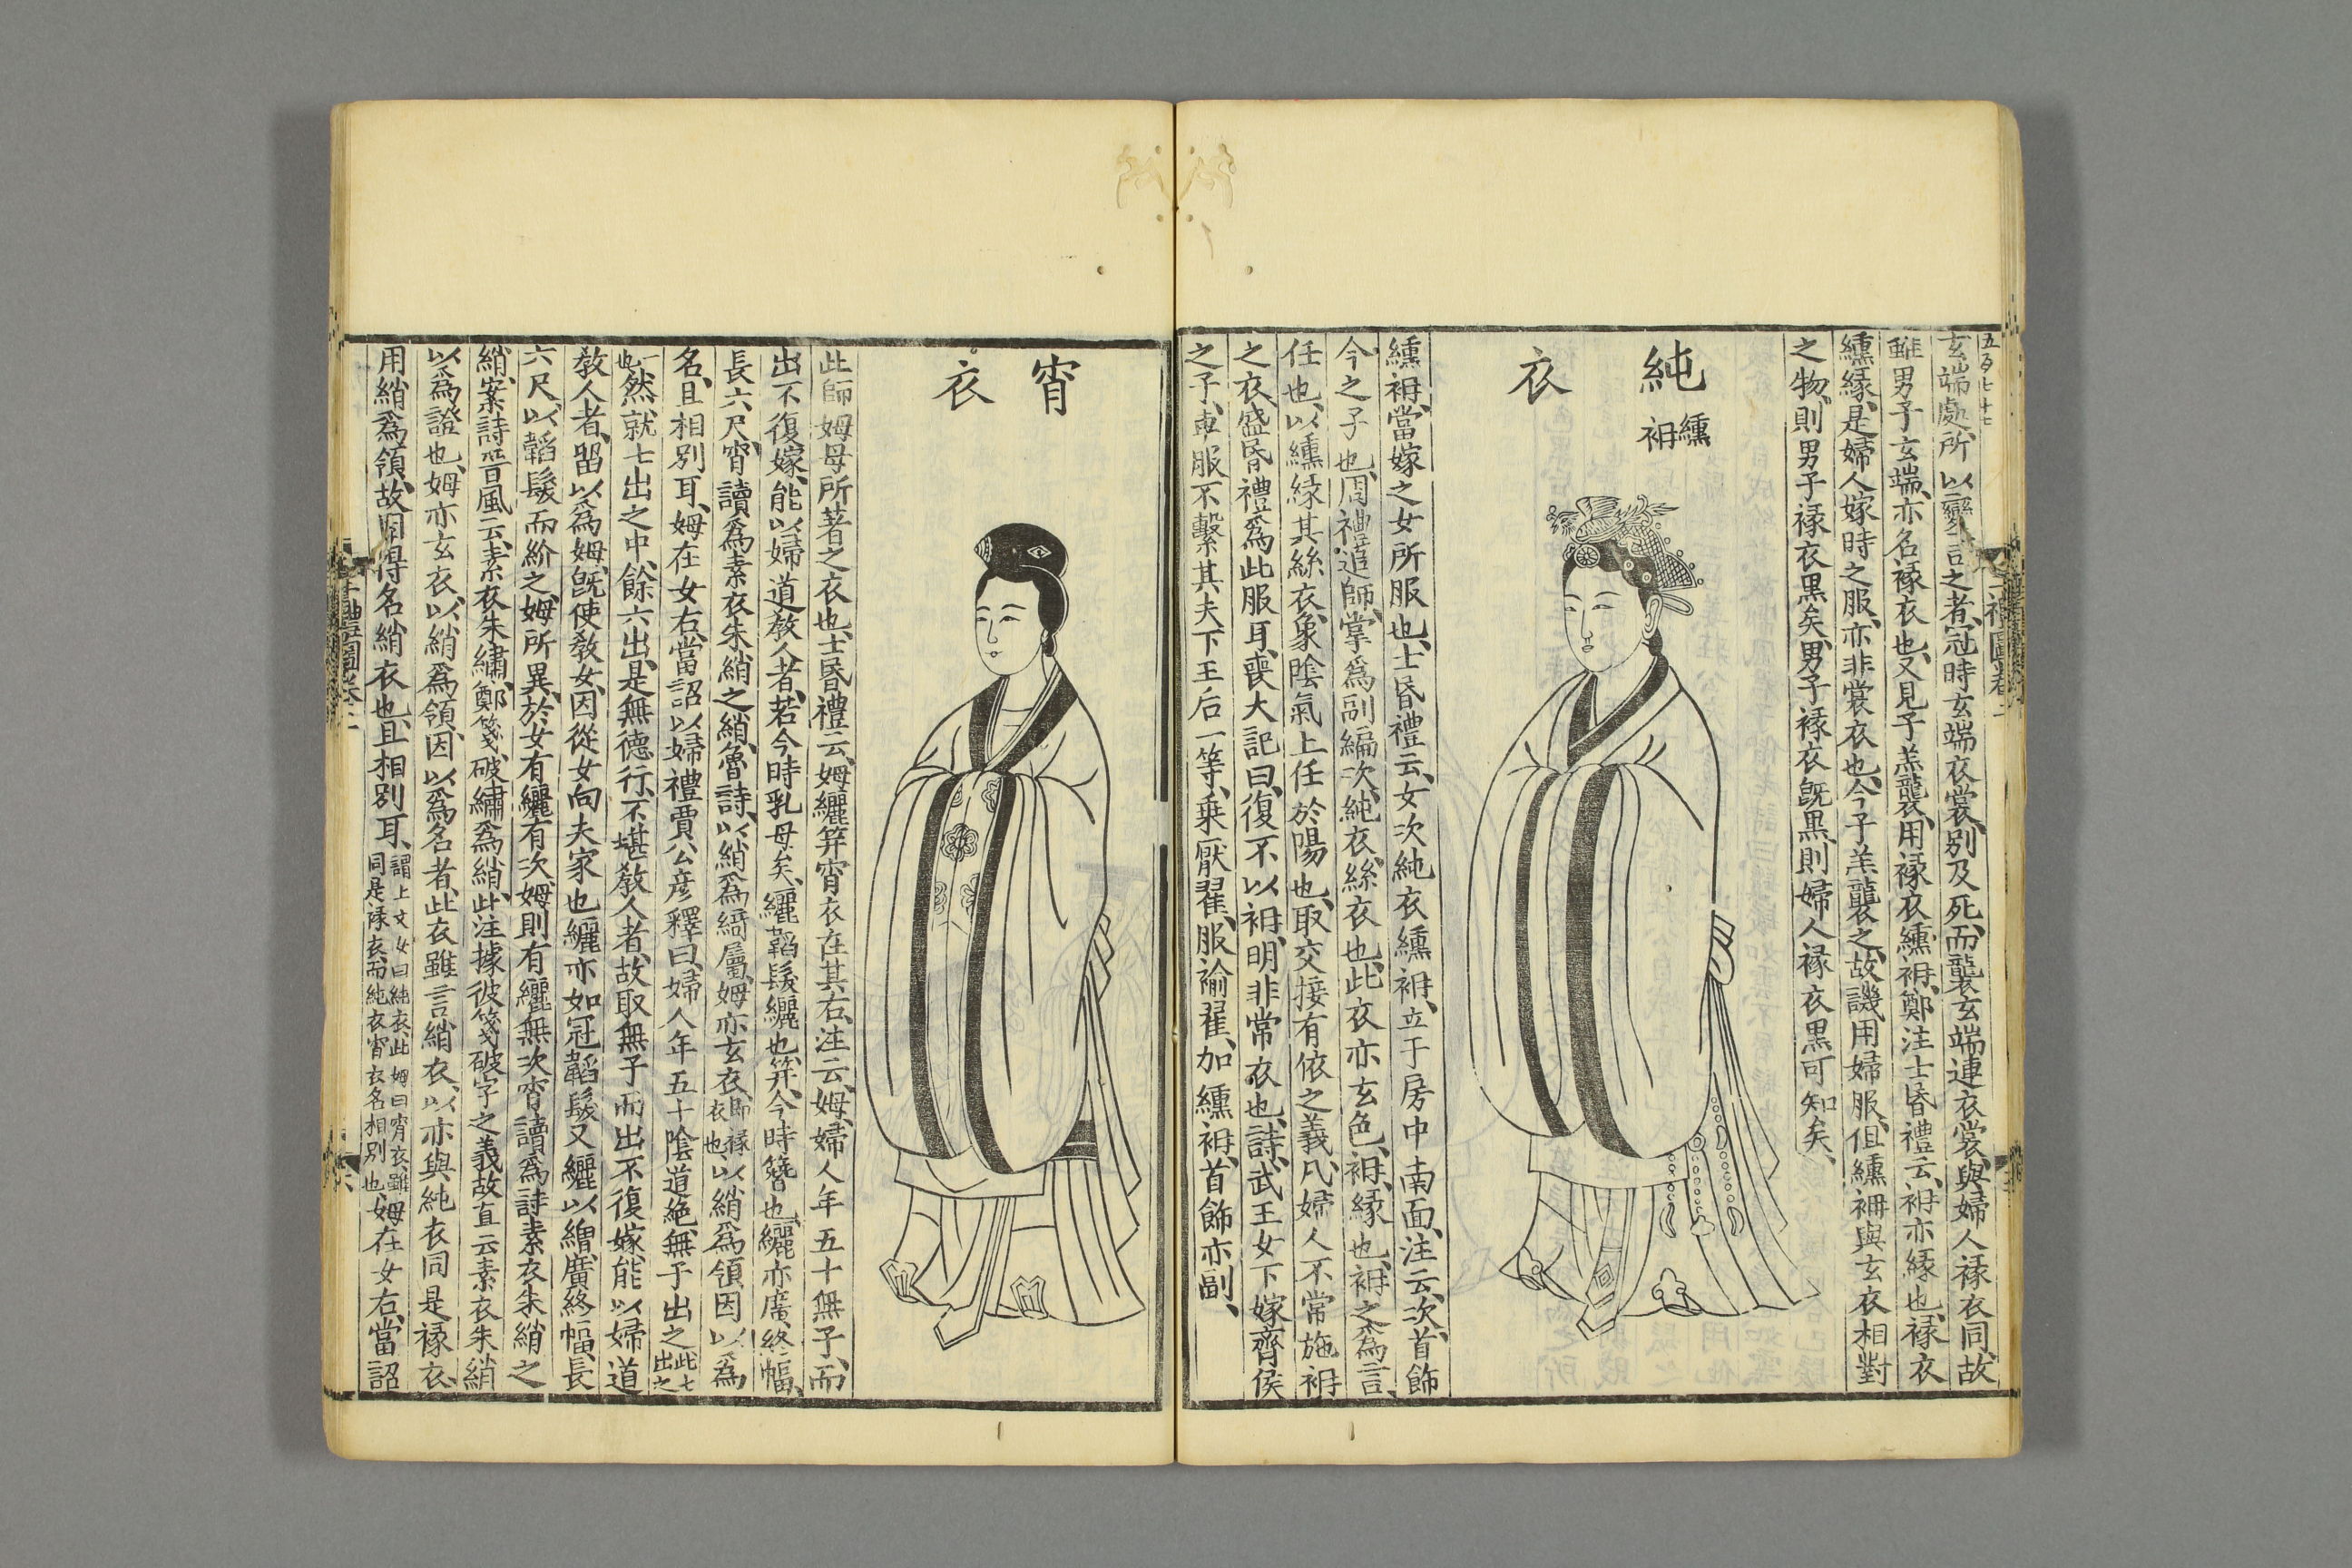 五百七十七
玄端處所以變言之者冠時玄端衣裳別及死而襲玄端連衣裳與婦人褖衣同故
雖男子玄端亦名褖衣也又見子羔襲用褖衣纁袡鄭注士昏禮云袡亦緣也褖衣
纁緣是婦人嫁時之服亦非裳衣也今子羔襲之故譏用婦服但纁袡與玄衣相對
之物則男子褖衣黑矣男子褖衣既黑則婦人褖衣黑可知矣
純衣
纁袡
纁袡當嫁之女所服也士昏禮云女次純衣纁袡立于房中南面注云次首飾
今之子也周禮追師掌為副編次純衣絲衣也此衣亦玄色袡緣也袡之為言
任也以纁緣其絲衣象陰氣上任於陽也取交接有依之義凡婦人不常施袡
之衣盛昏禮為此服耳喪大記曰復不以袡明非常衣也詩武王女下嫁齊侯
之子車服不繫其夫下王后一等乘厭翟服褕翟加纁袡首飾亦副
宵衣
此師姆母所著之衣也士昏禮云姆纚笄宵衣在其右注云姆婦人年五十無子而
出不復嫁能以婦道教人者若今時乳母矣纚韜髮纚也笄今時簪也纚亦廣終幅
長六尺宵讀為素衣朱綃之綃魯詩以綃為綺屬姆亦玄衣即褖衣也以綃為領因以為
名且相別耳姆在女右當詔以婦禮賈公彥釋曰婦人年五十陰道絕無子出之此七出之
一也然就七出之中餘六出是無德行不堪教人者故取無子而出不復嫁能以婦道
教人者留以為姆既使教女因從女向夫家也纚亦如冠韜髮又纚以繒廣終幅長
六尺以韜髮而紒之姆所異於女有纚有次姆則有纚無次宵讀為詩素衣朱綃之
綃案詩晉風云素衣朱繡鄭箋破繡為綃此注據彼箋破字之義故直云素衣朱綃
以為證也姆亦玄衣以綃為領因以為名者此衣雖言綃衣以亦與純衣同是褖衣
用綃為領故因得名綃衣也且相別耳謂上文女曰純衣此姆曰宵衣雖同是褖衣而純衣宵衣名相別也姆在女右當詔